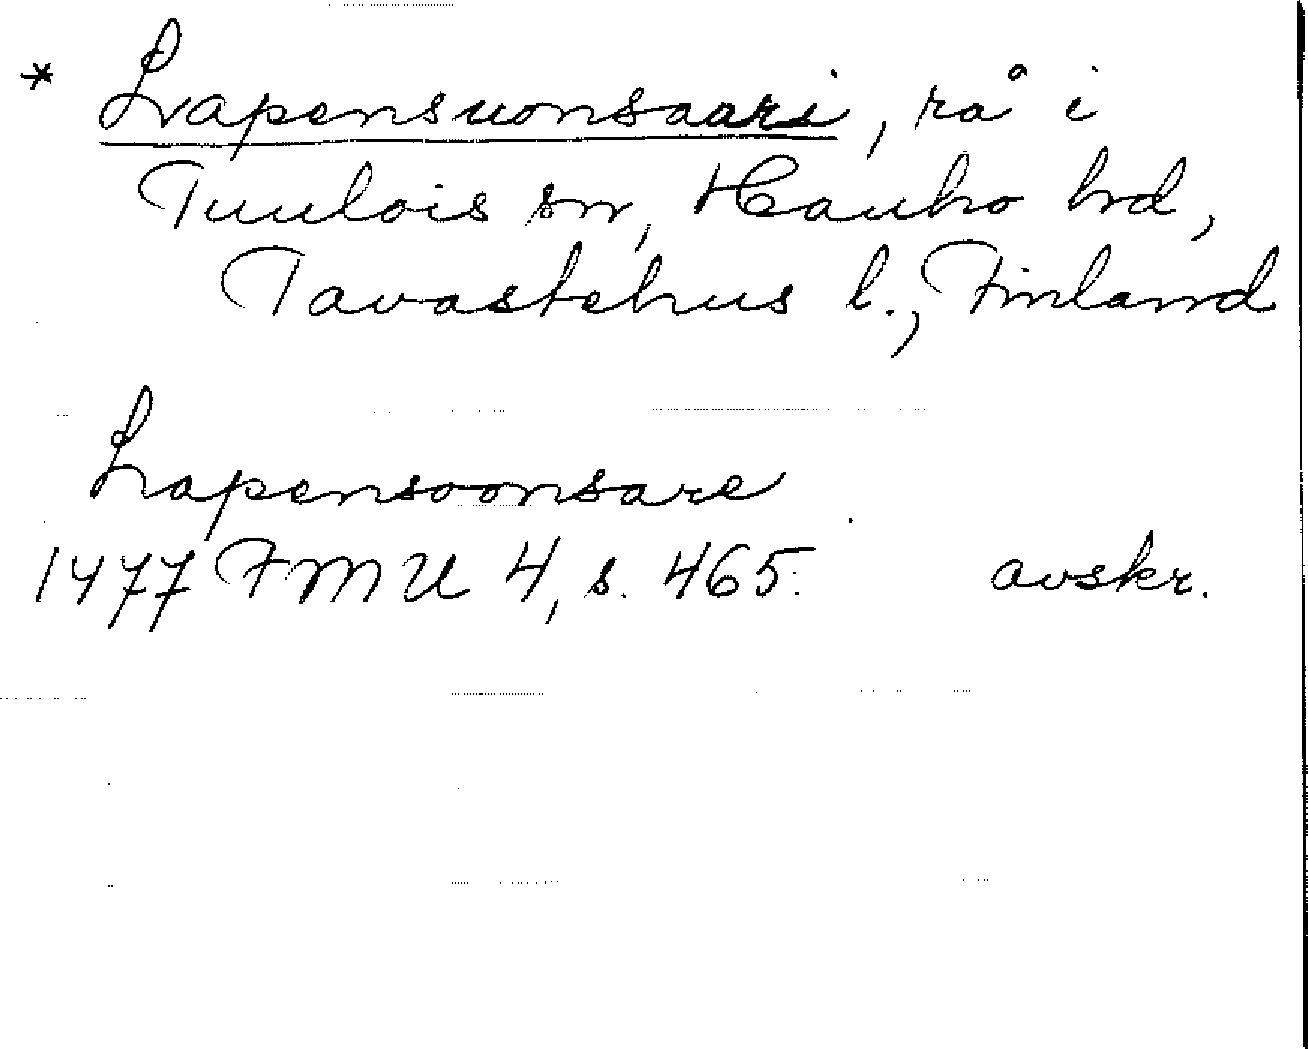 * Lapensuonsaari, rå i
Tuulois sn, Hauho hd,
Tavastehus l., Finland
Lapensoonsare
1477 FMU 4, s. 465. avskr.